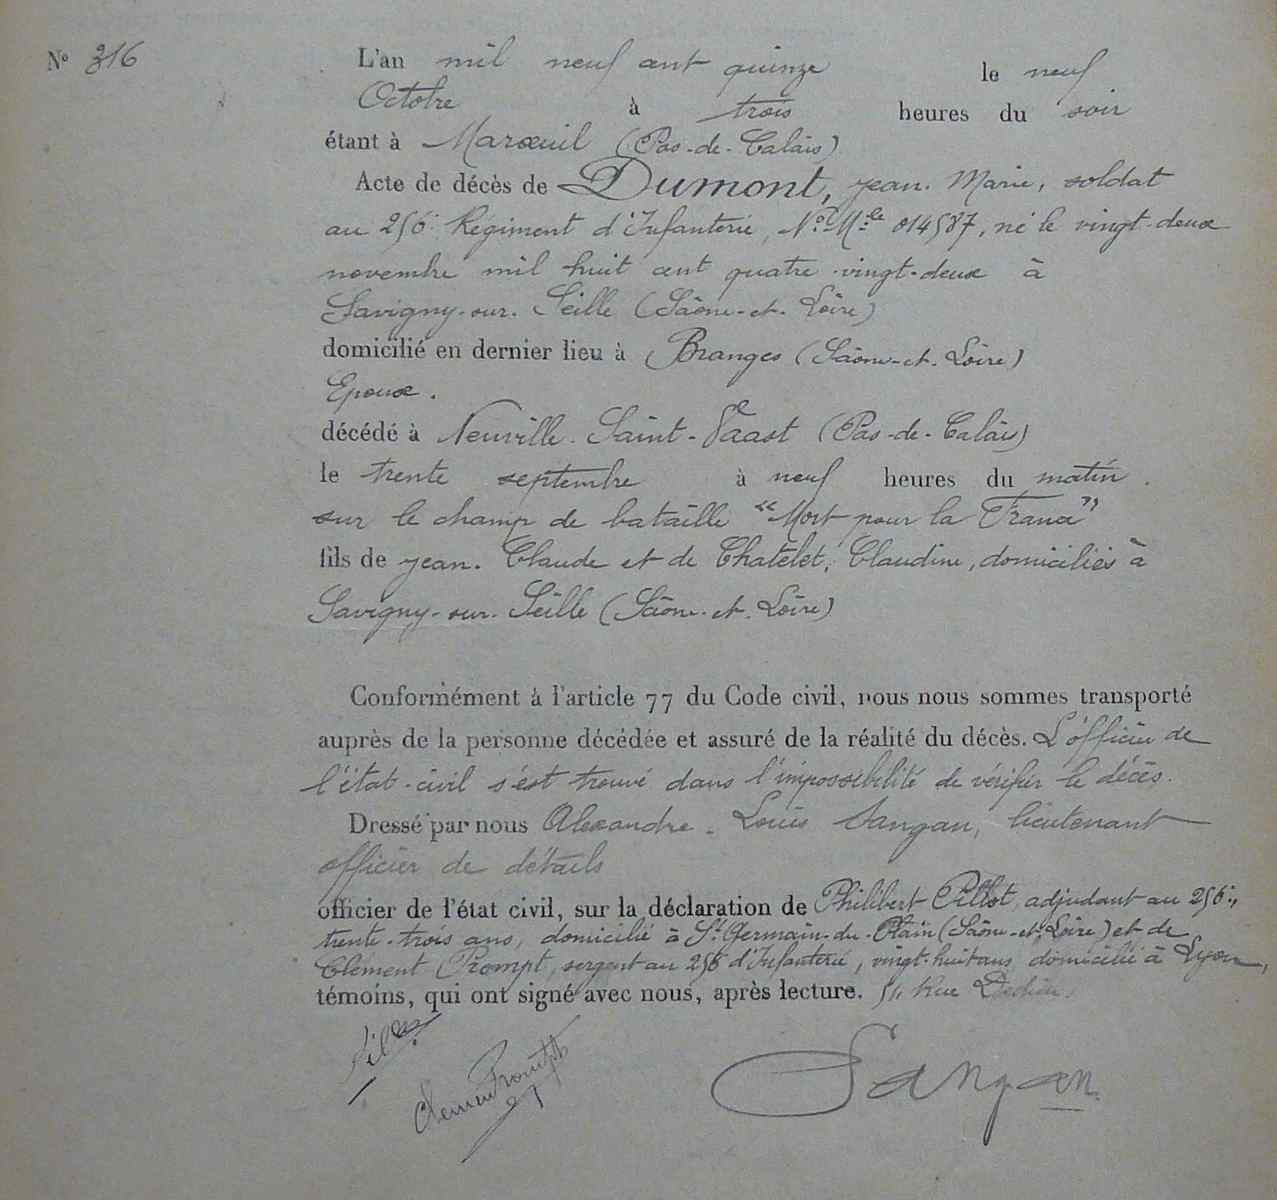 N° 316
L'an mil neuf cent quinze le neuf
Octobre à trois heures du soir
étant à Marœuil (Pas-de-Calais)
Acte de décès de Dumont, Jean-Marie, soldat
au 256e Régiment d'Infanterie, N° Mle 014587, né le vingt-deux
novembre mil huit cent quatre-vingt-deux à
Savigny-sur-Seille (Saône-et-Loire)
domicilié en dernier lieu à Branges (Saône-et-Loire)
Epoux.
décédé à Neuville-Saint-Vaast (Pas-de-Calais)
le trente septembre à neuf heures du matin.
sur le champ de bataille "Mort pour la France"
fils de Jean-Claude et de Chatelet, Claudine, domiciliés à
Savigny-sur-Seille (Saône-et-Loire)
Conformément à l'article 77 du Code civil, nous nous sommes transporté
auprès de la personne décédée et assuré de la réalité du décès. L'officier de
l'état-civil s'est trouvé dans l'impossibilité de vérifier le décès.
Dressé par nous Alexandre-Louis Sangan, lieutenant
officier de détails
officier de l'état civil, sur la déclaration de Philibert Pillot, adjudant au 256e,
trente-trois ans, domicilié à St Germain-du-Plain (Saône-et-Loire) et de
Clément Prompt, sergent au 256 d'Infanterie, vingt-huit ans, domicilié à Lyon,
témoins, qui ont signé avec nous, après lecture. 54, Rue
Clément Prompt
Sangan